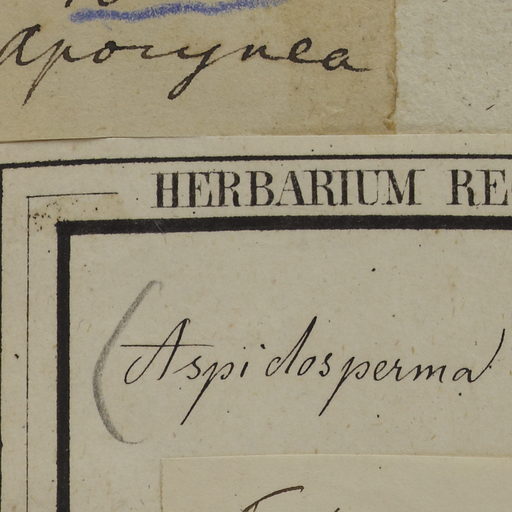 Apocynea
HERBARIUM RE
(Aspidosperma